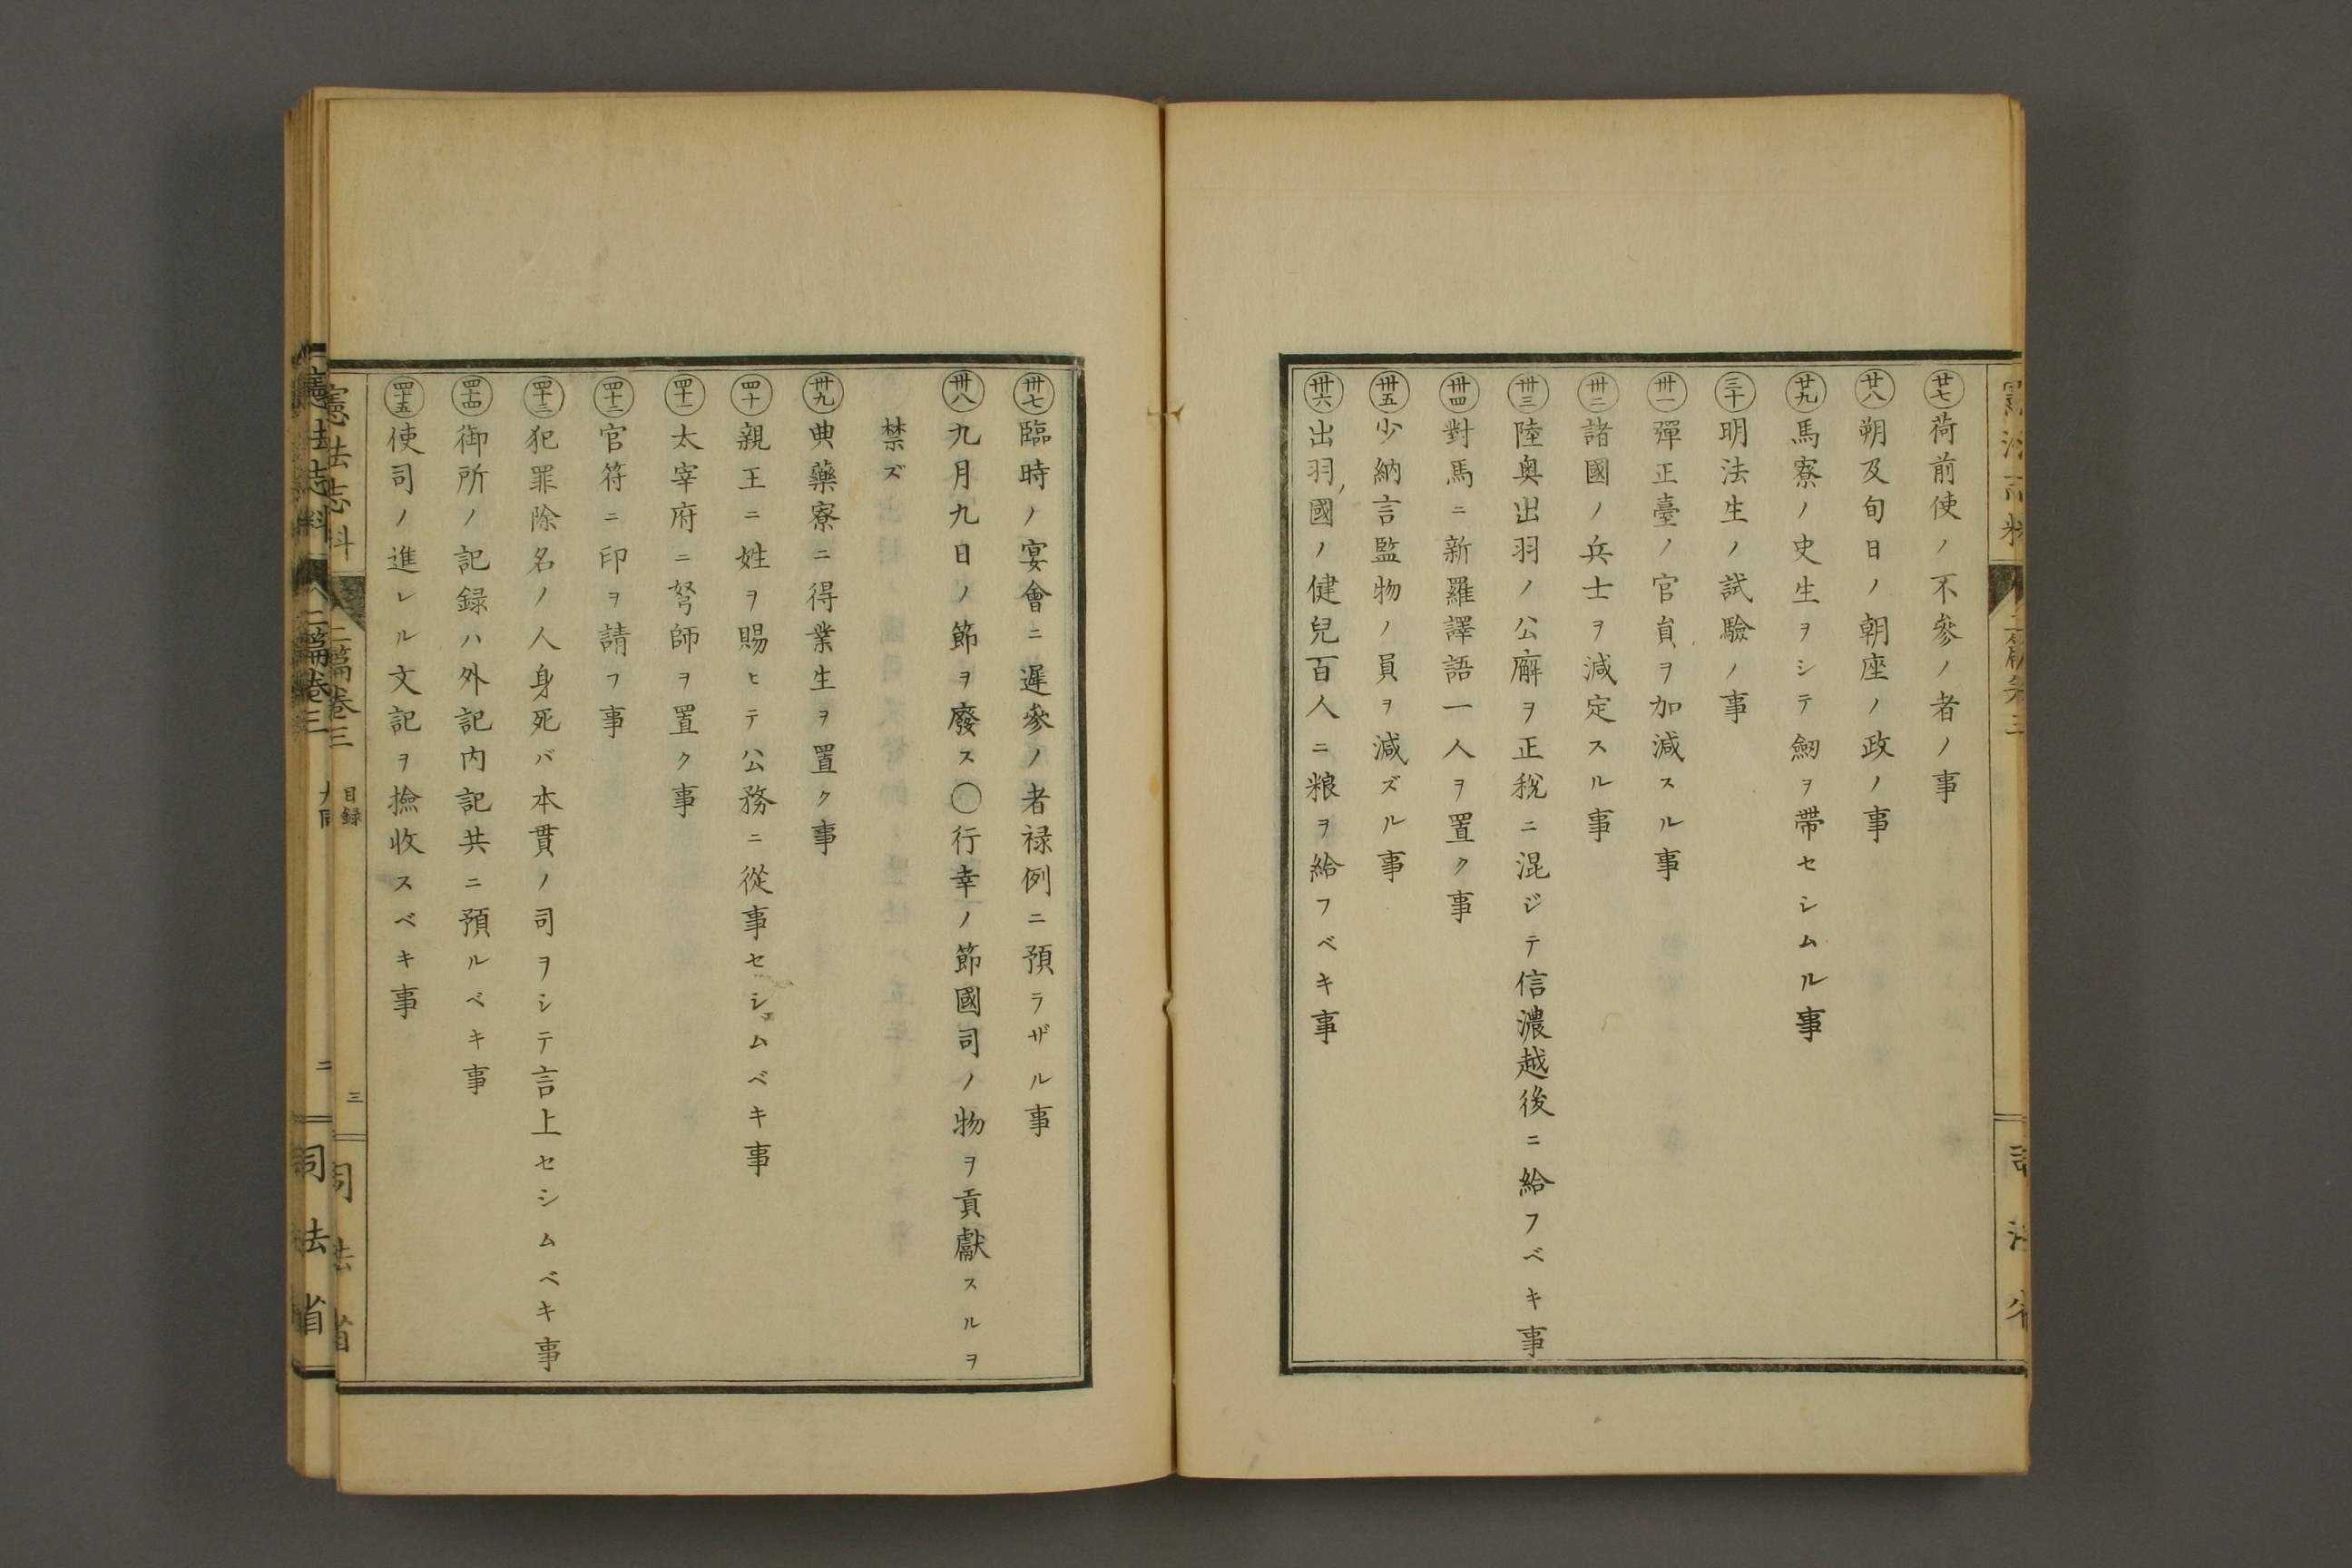 廿七荷前使ノ不參ノ者ノ事
廿八朔及旬日ノ朝座ノ政ノ事
廿九馬寮ノ史生ヲシテ劒ヲ帶セシムル事
三十明法生ノ試驗ノ事
卅一彈正臺ノ官員ヲ加減スル事
卅二諸國ノ兵士ヲ減定スル事
卅三陸奥出羽ノ公廨ヲ正稅ニ混ジテ信濃越後ニ給フベキ事
卅四對馬ニ新羅譯語一人ヲ置ク事
卅五少納言監物ノ員ヲ減ズル事
卅六出羽國ノ健兒百人ニ粮ヲ給フベキ事
卅七臨時ノ宴會ニ遲參ノ者禄例ニ預ラザル事
卅八九月九日ノ節ヲ廢ス〇行幸ノ節國司ノ物ヲ貢獻スルヲ
禁ズ
卅九典藥寮ニ得業生ヲ置ク事
四十親王ニ姓ヲ賜ヒテ公務ニ從事セシムベキ事
四十一太宰府ニ弩師ヲ置ク事
四十二官符ニ印ヲ請フ事
四十三犯罪除名ノ人身死バ本貫ノ司ヲシテ言上セシムベキ事
四十四御所ノ記録ハ外記内記共ニ預ルベキ事
四十五使司ノ進レル文記ヲ撿收スベキ事
憲法志料 二篇卷三 目録 三 司法省
憲法志料 二篇卷三 二 司法省